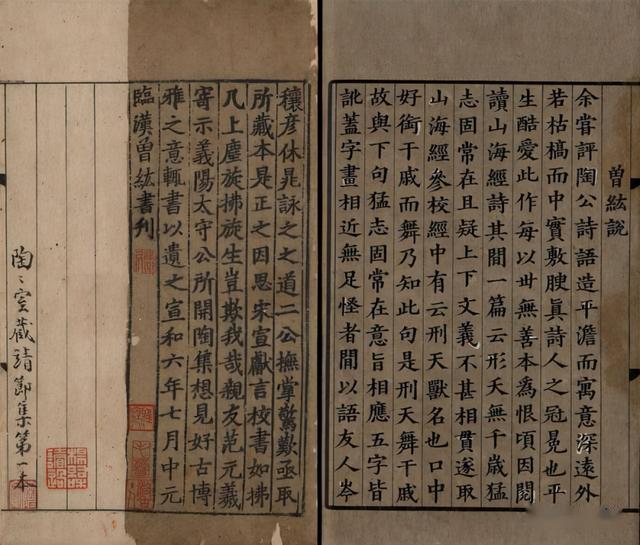 曾紘說
余嘗評陶公詩語造平澹而寓意深遠外
若枯槁而中實敷腴眞詩人之冠冕也平
生酷愛此作每以丗無善本為恨頃因閱
讀山海經詩其間一篇云形夭無千歲猛
志固常在且疑上下文義不甚相貫遂取
山海經參校經中有云刑天獸名也口中
好銜干戚而舞乃知此句是刑天舞干戚
故與下句猛志固常在意旨相應五字皆
訛蓋字畫相近無足怪者間以語友人岑
穰彥休晁詠之之道二公撫掌驚歎亟取
所藏本是正之因思宋宣獻言校書如拂
几上塵旋拂旋生豈欺我哉親友范元羲
寄示義陽太守公所開陶集想見好古博
雅之意輒書以遺之宣和六年七月中元
臨漢曾紘書刊
陶〻室藏靖節集第一本